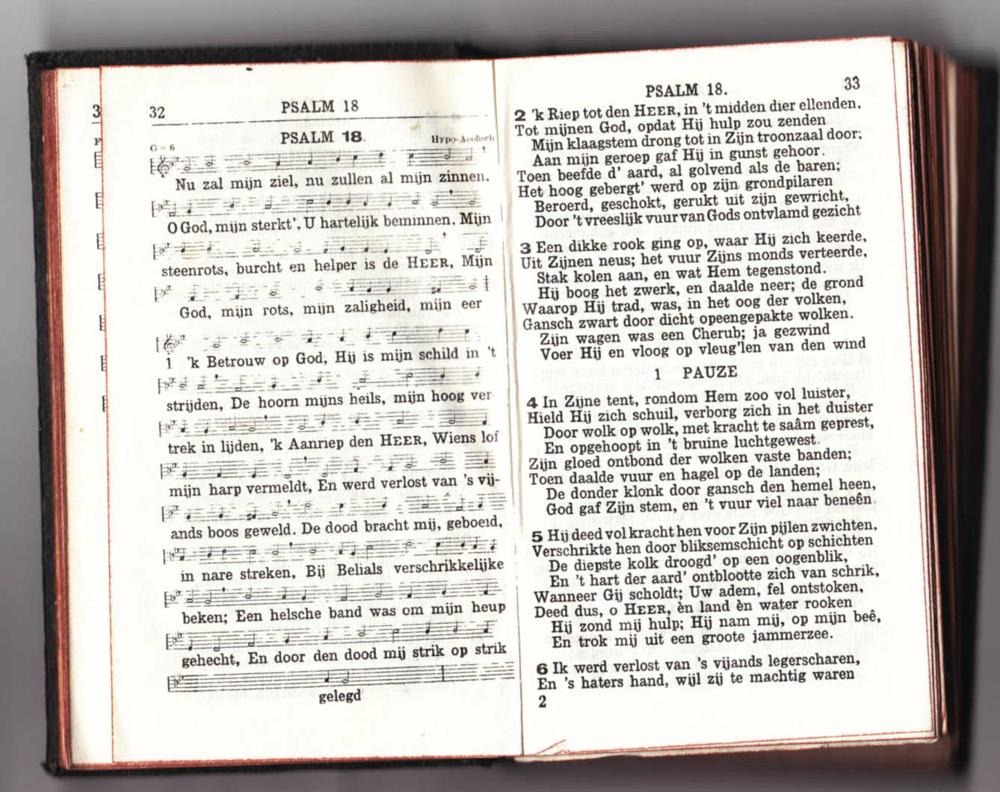 3
32
PSALM 18
PSALM 18.
Hypo-Aeolisch
G = 6
Nu zal mijn ziel, nu zullen al mijn zinnen.
O God, mijn sterkt', U hartelijk beminnen. Mijn
steenrots, burcht en helper is de HEER, Mijn
God, mijn rots, mijn zaligheid, mijn eer
1 'k Betrouw op God, Hij is mijn schild in 't
strijden, De hoorn mijns heils, mijn hoog ver-
trek in lijden, 'k Aanriep den HEER, Wiens lof
mijn harp vermeldt, En werd verlost van 's vij-
ands boos geweld. De dood bracht mij, geboeid,
in nare streken, Bij Belials verschrikkelijke
beken; Een helsche band was om mijn heup
gehecht, En door den dood mij strik op strik
gelegd
PSALM 18.
33
2 'k Riep tot den HEER, in 't midden dier ellenden.
Tot mijnen God, opdat Hij hulp zou zenden
Mijn klaagstem drong tot in Zijn troonzaal door;
Aan mijn geroep gaf Hij in gunst gehoor.
Toen beefde d' aard, al golvend als de baren;
Het hoog gebergt' werd op zijn grondpilaren
Beroerd, geschokt, gerukt uit zijn gewricht,
Door 't vreeslijk vuur van Gods ontvlamd gezicht
3 Een dikke rook ging op, waar Hij zich keerde,
Uit Zijnen neus; het vuur Zijns monds verteerde,
Stak kolen aan, en wat Hem tegenstond.
Hij boog het zwerk, en daalde neer; de grond
Waarop Hij trad, was, in het oog der volken,
Gansch zwart door dicht opeengepakte wolken.
Zijn wagen was een Cherub; ja gezwind
Voer Hij en vloog op vleug'len van den wind
1 PAUZE
4 In Zijne tent, rondom Hem zoo vol luister,
Hield Hij zich schuil, verborg zich in het duister
Door wolk op wolk, met kracht te saâm geprest,
En opgehoopt in 't bruine luchtgewest.
Zijn gloed ontbond der wolken vaste banden;
Toen daalde vuur en hagel op de landen;
De donder klonk door gansch den hemel heen,
God gaf Zijn stem, en 't vuur viel naar beneên.
5 Hij deed vol kracht hen voor Zijn pijlen zwichten,
Verschrikte hen door bliksemschicht op schichten
De diepste kolk droogd' op een oogenblik,
En 't hart der aard' ontblootte zich van schrik,
Wanneer Gij scholdt; Uw adem, fel ontstoken,
Deed dus, o HEER, èn land èn water rooken
Hij zond mij hulp; Hij nam mij, op mijn beê,
En trok mij uit een groote jammerzee.
6 Ik werd verlost van 's vijands legerscharen,
En 's haters hand, wijl zij te machtig waren
2